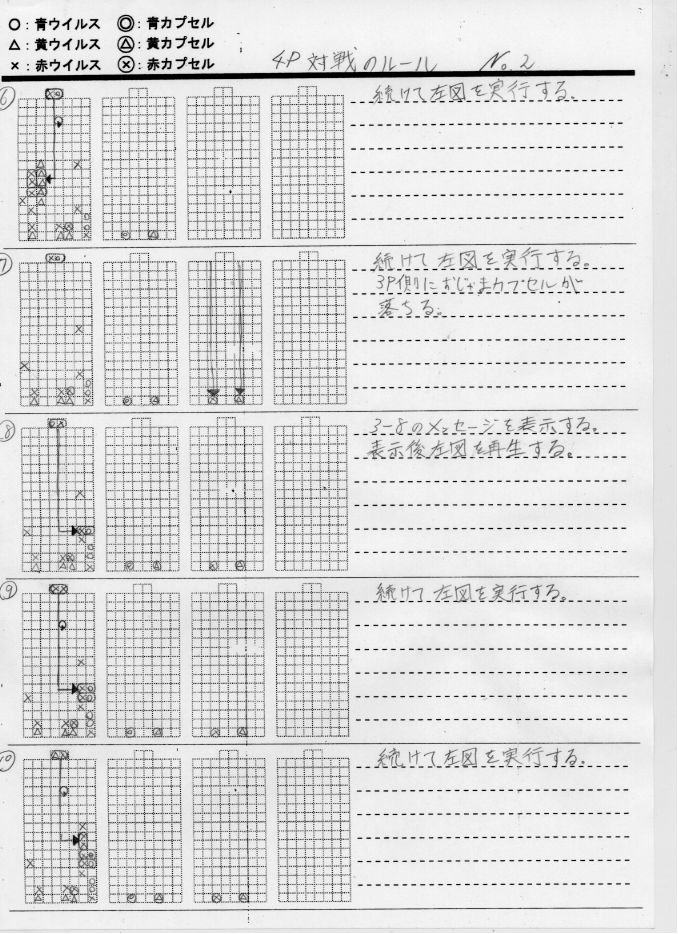 ○：青ウイルス ◎：青カプセル
△：黄ウイルス Ⓐ：黄カプセル
×：赤ウイルス ⓧ：赤カプセル
4P対戦のルール No.2
⑥
続けて左図を実行する。
⑦
続けて左図を実行する。
3P側におじゃまカプセルが
落ちる。
⑧
のメッセージを表示する。
表示後左図を再生する。
⑨
続けて左図を実行する。
⑩
続けて左図を実行する。